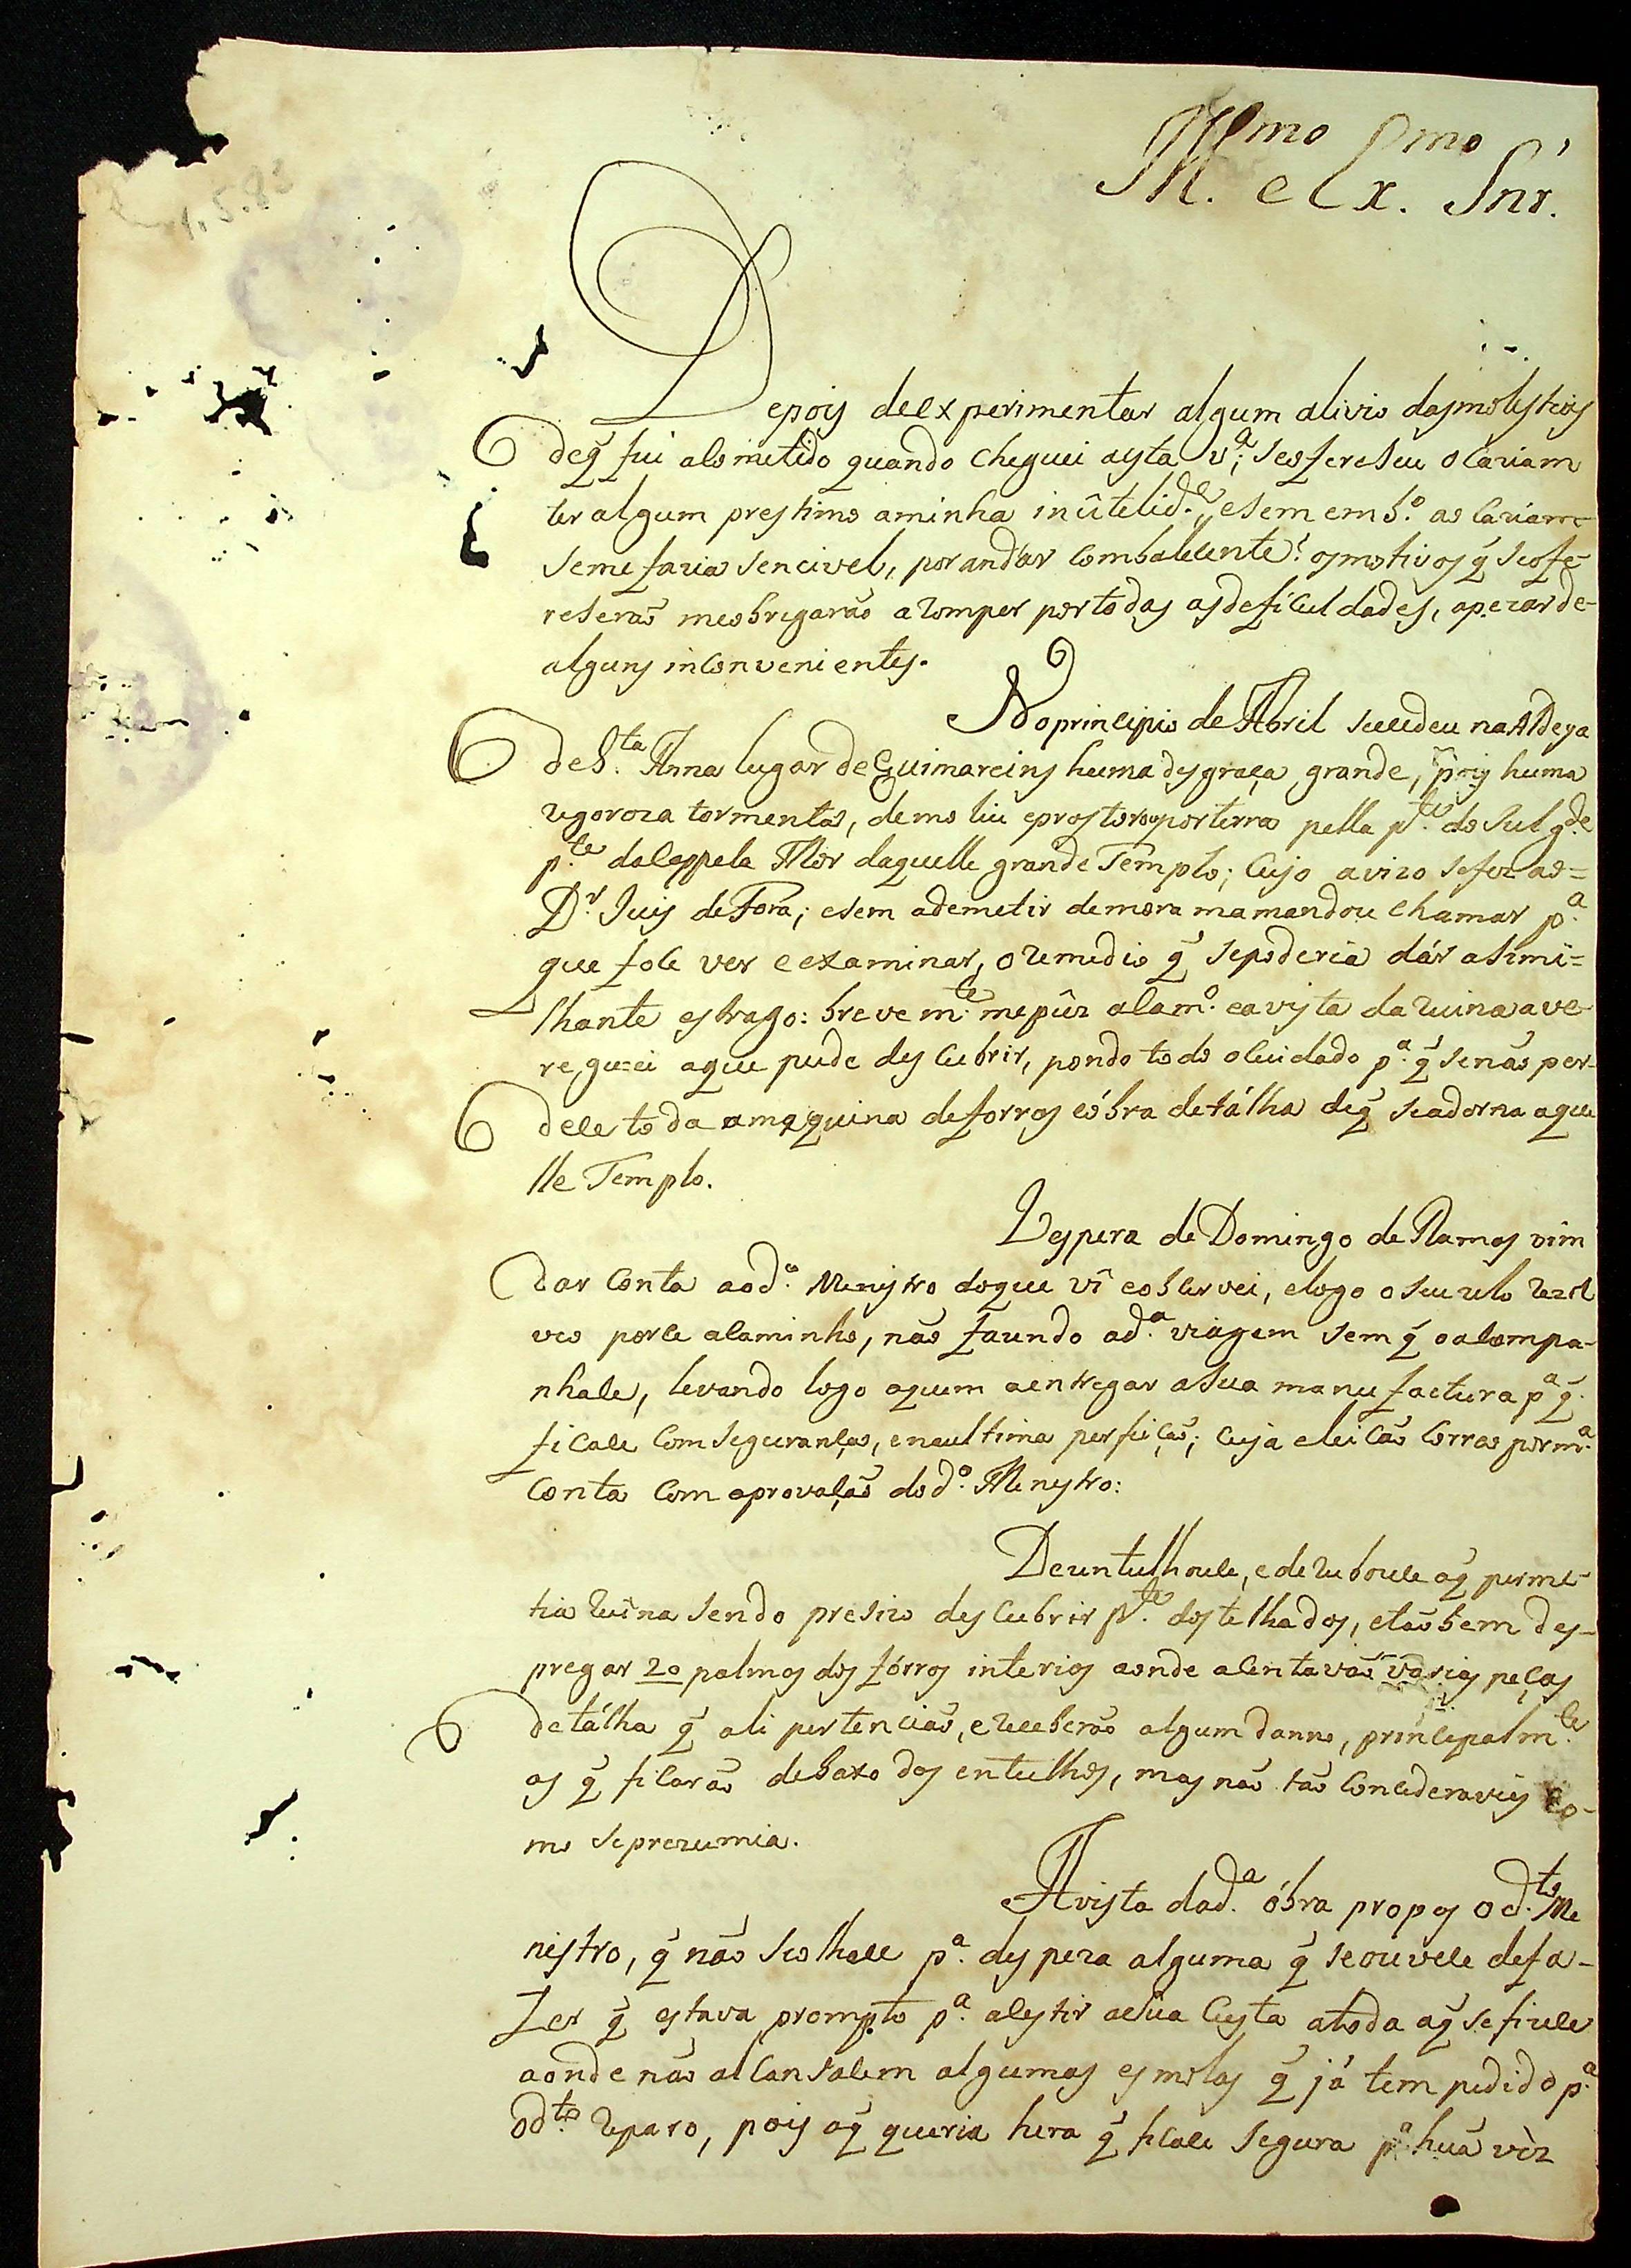 Ill.mo e Ex.mo Snr.
Depois deexperimentar algum alivio dasmolestias
deq̃ fui acometido quando cheguei aesta v.a; seoferesceu ocaziam
ter algum prestimo aminha inûtelid.e, esem emb.o ao caziam
seme fazia sencivel, por andar combalecente: osmotivos q̃ seofe-
reseraõ meobregaraõ aromper portodas asdeficuldades, apezarde-
alguns inconvenientes.
Noprincipio de Abril sucedeu naAldeya
deS.ta Anna lugar deGuimareins huma desgraça grande, pois huma
rigoroza tormenta, demoliu eprostrou porterra pella p.te do Sul g.de
p.te daCappela Mór daquelle grande Templo; cujo avizo sefez ao=
D.r Juis deFora; esem ademetir demora mamandou chamar p.a
que foce ver eexaminar, oremedio q̃ sepoderia dár asimi=
lhante estrago: brevem.te mepûz acam.o eavista daruina ave-
reguei aque pude descubrir, pondo todo ocuidado p.a q̃ senaõ per-
dece toda amaquina deforros eóbra detálha deq̃ seadorna aque
lle Templo.
Vespera de Domingo de Ramos vim
dar conta aod.o Menistro doque vî eobservei, elogo oseu zelo rezol
veo porce acaminho, naõ fazendo ad.a viagem sem q̃ oacompa-
nhace, levando logo aquem aentregar asua manufactura p.a q̃
ficace comseguranças, enaultima perfeiçaõ; cuja eleiçaõ correo porm.a
conta com aprovaçaõ dod.o Menystro:
Dezentulhouce, ederubouce aq̃ perme-
tia ruina sendo presizo descubrir p.te dostelhados, etaõbem des-
pregar 20 palmos dos fórros interios aonde acentavaõ varias peças
detálha q̃ ali pertenciaõ, ereceberaõ algum danno, principalm.te
as q̃ ficaraõ debaxo dos entulhos, mas naõ taõ concideravies co-
mo seprezumia.
Avista dad.a óbra propos od.to Me
nistro, q̃ naõ seolhace p.a despeza alguma q̃ seouvece defa-
zer q̃ estava prompto p.a acestir aesua custa atoda aq̃ sefizece
aonde naõ alcansacem algumas esmolas q̃ já tem pedido p.a
od.to reparo, pois aq̃ queria hera q̃ ficace segura p.a huã vèz